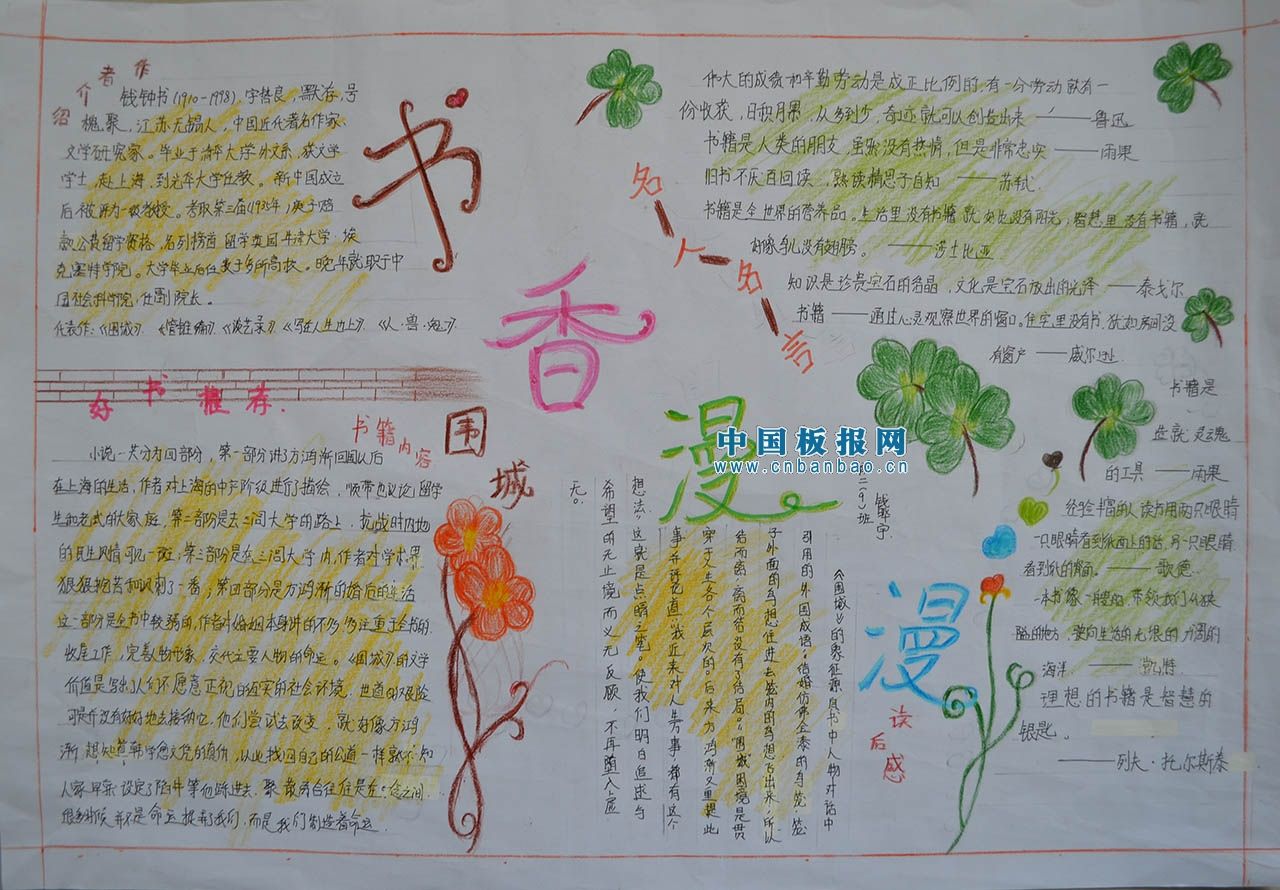 作者介绍
钱钟书(1910-1998),字哲良,默存,号
槐聚,江苏无锡人,中国近代著名作家、
文学研究家。毕业于清华大学外文系,获文学
学士,赴上海,到光华大学任教。新中国成立
后被评为一级教授。考取第三届(1935年)庚子赔
款公费留学资格,名列榜首留学英国牛津大学、埃
克塞特学院。大学毕业后任教于多所高校。晚年就职于中
国社会科学院,任副院长。
代表作:《围城》、《管锥编》、《谈艺录》、《写在人生边上》、《人·兽·鬼》
书
香
漫
漫
名人名言
伟大的成绩和辛勤劳动是成正比例的,有一分劳动就有一
份收获,日积月累,从多到少,奇迹就可以创造出来 ——鲁迅
书籍是人类的朋友,虽然没有热情,但是非常忠实 ——雨果
旧书不厌百回读,熟读精思子自知 ——苏轼
书籍是全世界的营养品。生活里没有书籍就好比没有阳光;智慧里没有书籍,就
好像鸟儿没有翅膀。 ——莎士比亚
知识是珍贵宝石的结晶,文化是宝石放出的光泽 ——泰戈尔
书籍——通过心灵观察世界的窗口。住宅里没有书,犹如房间没
有窗户 ——威尔逊
书籍是
造就灵魂
的工具 ——雨果
经验丰富的人读书用两只眼睛
一只眼睛看到纸面上的话,另一只眼睛
看到纸的背面。 ——歌德
一本书像一艘船,带领我们从狭
隘的地方,驶向生活的无限的力阔的
海洋 ——凯勒
理想的书籍是智慧的
银匙。
——列夫·托尔斯泰
好书推荐
书籍内容
围城
小说一共分为四部分,第一部分讲了方鸿渐回国以后
在上海的生活,作者对上海的中产阶级进行了描绘,顺带也议论留学
生和老式的大家庭,第二部分是去三闾大学的路上,抗战时内地
的民生风情可见一斑;第三部分是在三闾大学内,作者对学术界
狠狠挖苦和讽刺了一番;第四部分是方鸿渐的婚后的生活
这一部分是全书中较弱的,作者对婚姻本身讲的不多,多注重于全书的
收尾工作,完善人物形象,交代主要人物的命运。《围城》的文学
价值是写出人们不愿意正视日趋实的社会环境,
可是并没有好好地去接纳它,他们尝试去改变,就好像方鸿
渐,想知道韩学愈文凭的真伪,从此找回自己的公道一样就不知
人家早就设定了陷井等他跳进去。聚散离合往往是在一念之间
很多时候并不是命运捉弄我们,而是我们制造着命运
中国板报网
www.cnbanbao.cn
二(9)班
读后感
《围城》的象征源自书中人物对话中
引用的外国成语,结婚仿佛金漆的鸟笼,笼
子外面的鸟想住进去,笼内的鸟想飞出来,所以
结而离,离而结,没有了结局。围城困境是贯
穿于人生各个层次的。后来方鸿渐又重提此
事,并评论道:我近来对人生万事,都有这个
想法。这就是点睛之笔。使我们明白追求与
希望的无止境而义无反顾,不再堕入虚
无。